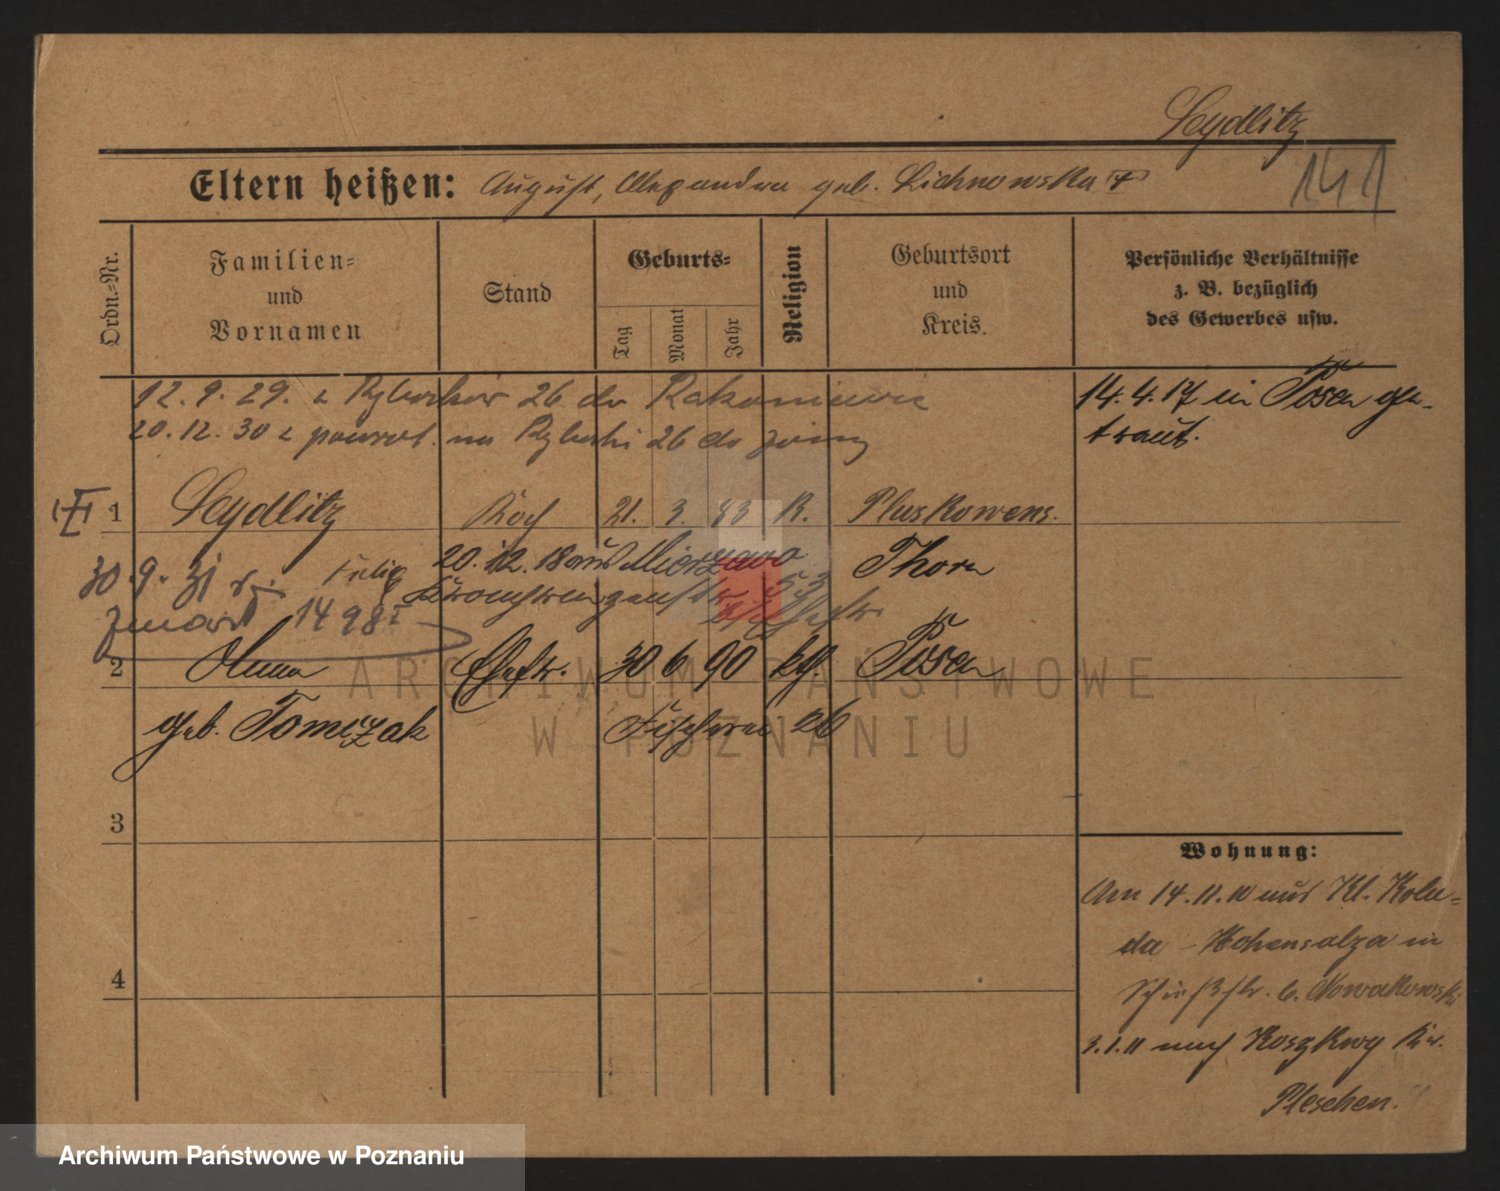 Seydlitz
141
Eltern heißen: August, Alexandra geb. Lichnowska
Ordn.=Nr.
Familien=
und
Vornamen
Stand
Geburts=
Tag
Monat
Jahr
Religion
Geburtsort
und
Kreis.
Persönliche Verhältnisse
z. B. bezüglich
des Gewerbes usw.
12.9.29. z 26 do Rakoniewic
20.12.30 z powrot. na Rybaki 26 do
14.4.17 in Posen ge-
traut.
1 Seydlitz Koch 21. 3. 83 K. Pluskowens.
20.12.18 aus Mierzewo Thorn
30.9.31
14 98
2 Anna Ehefr. 30 6 90 kth. Posen
geb. Tomczak Fischerei 26
3
4
Wohnung:
Am 14.11.10 aus Kl. Kolu=
da - Hohensalza in
Schießstr. 6. Nowakowski
3.1.11 nach Koszkwy Kr.
Pleschen.
ARCHIWUM PAŃSTWOWE
W POZNANIU
Archiwum Państwowe w Poznaniu